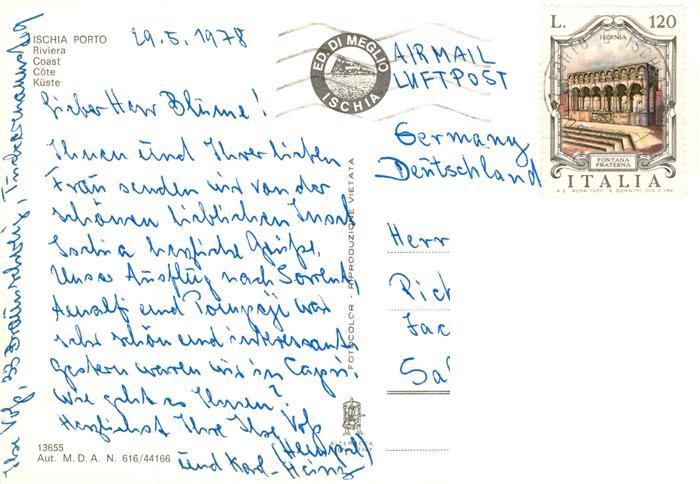 ISCHIA PORTO
Riviera
Coast
Côte
Küste
29.5.1978
Lieber Herr Blume!
Ihnen und Ihrer lieben
Frau senden wir von der
schönen lieblichen Insel
Ischia herzliche Grüße.
Unser Ausflug nach Sorrent,
Amalfi und Pompeji war
sehr schön und interessant.
Gestern waren wir in Capri.
Wie geht es Ihnen?
Herzlichst Ihre Ilse Volp
(Hempel)
und Karl-Heinz
13655
Aut. M. D. A. N. 616/44166
Ilse Volp, 33 Braunschweig,
FOTOCOLOR - RIPRODUZIONE VIETATA
ED. DI MEGLIO
ISCHIA
AIR MAIL
LUFTPOST
Germany
Deutschland
Herr
L. 120
ISERNIA
FONTANA
FRATERNA
ITALIA